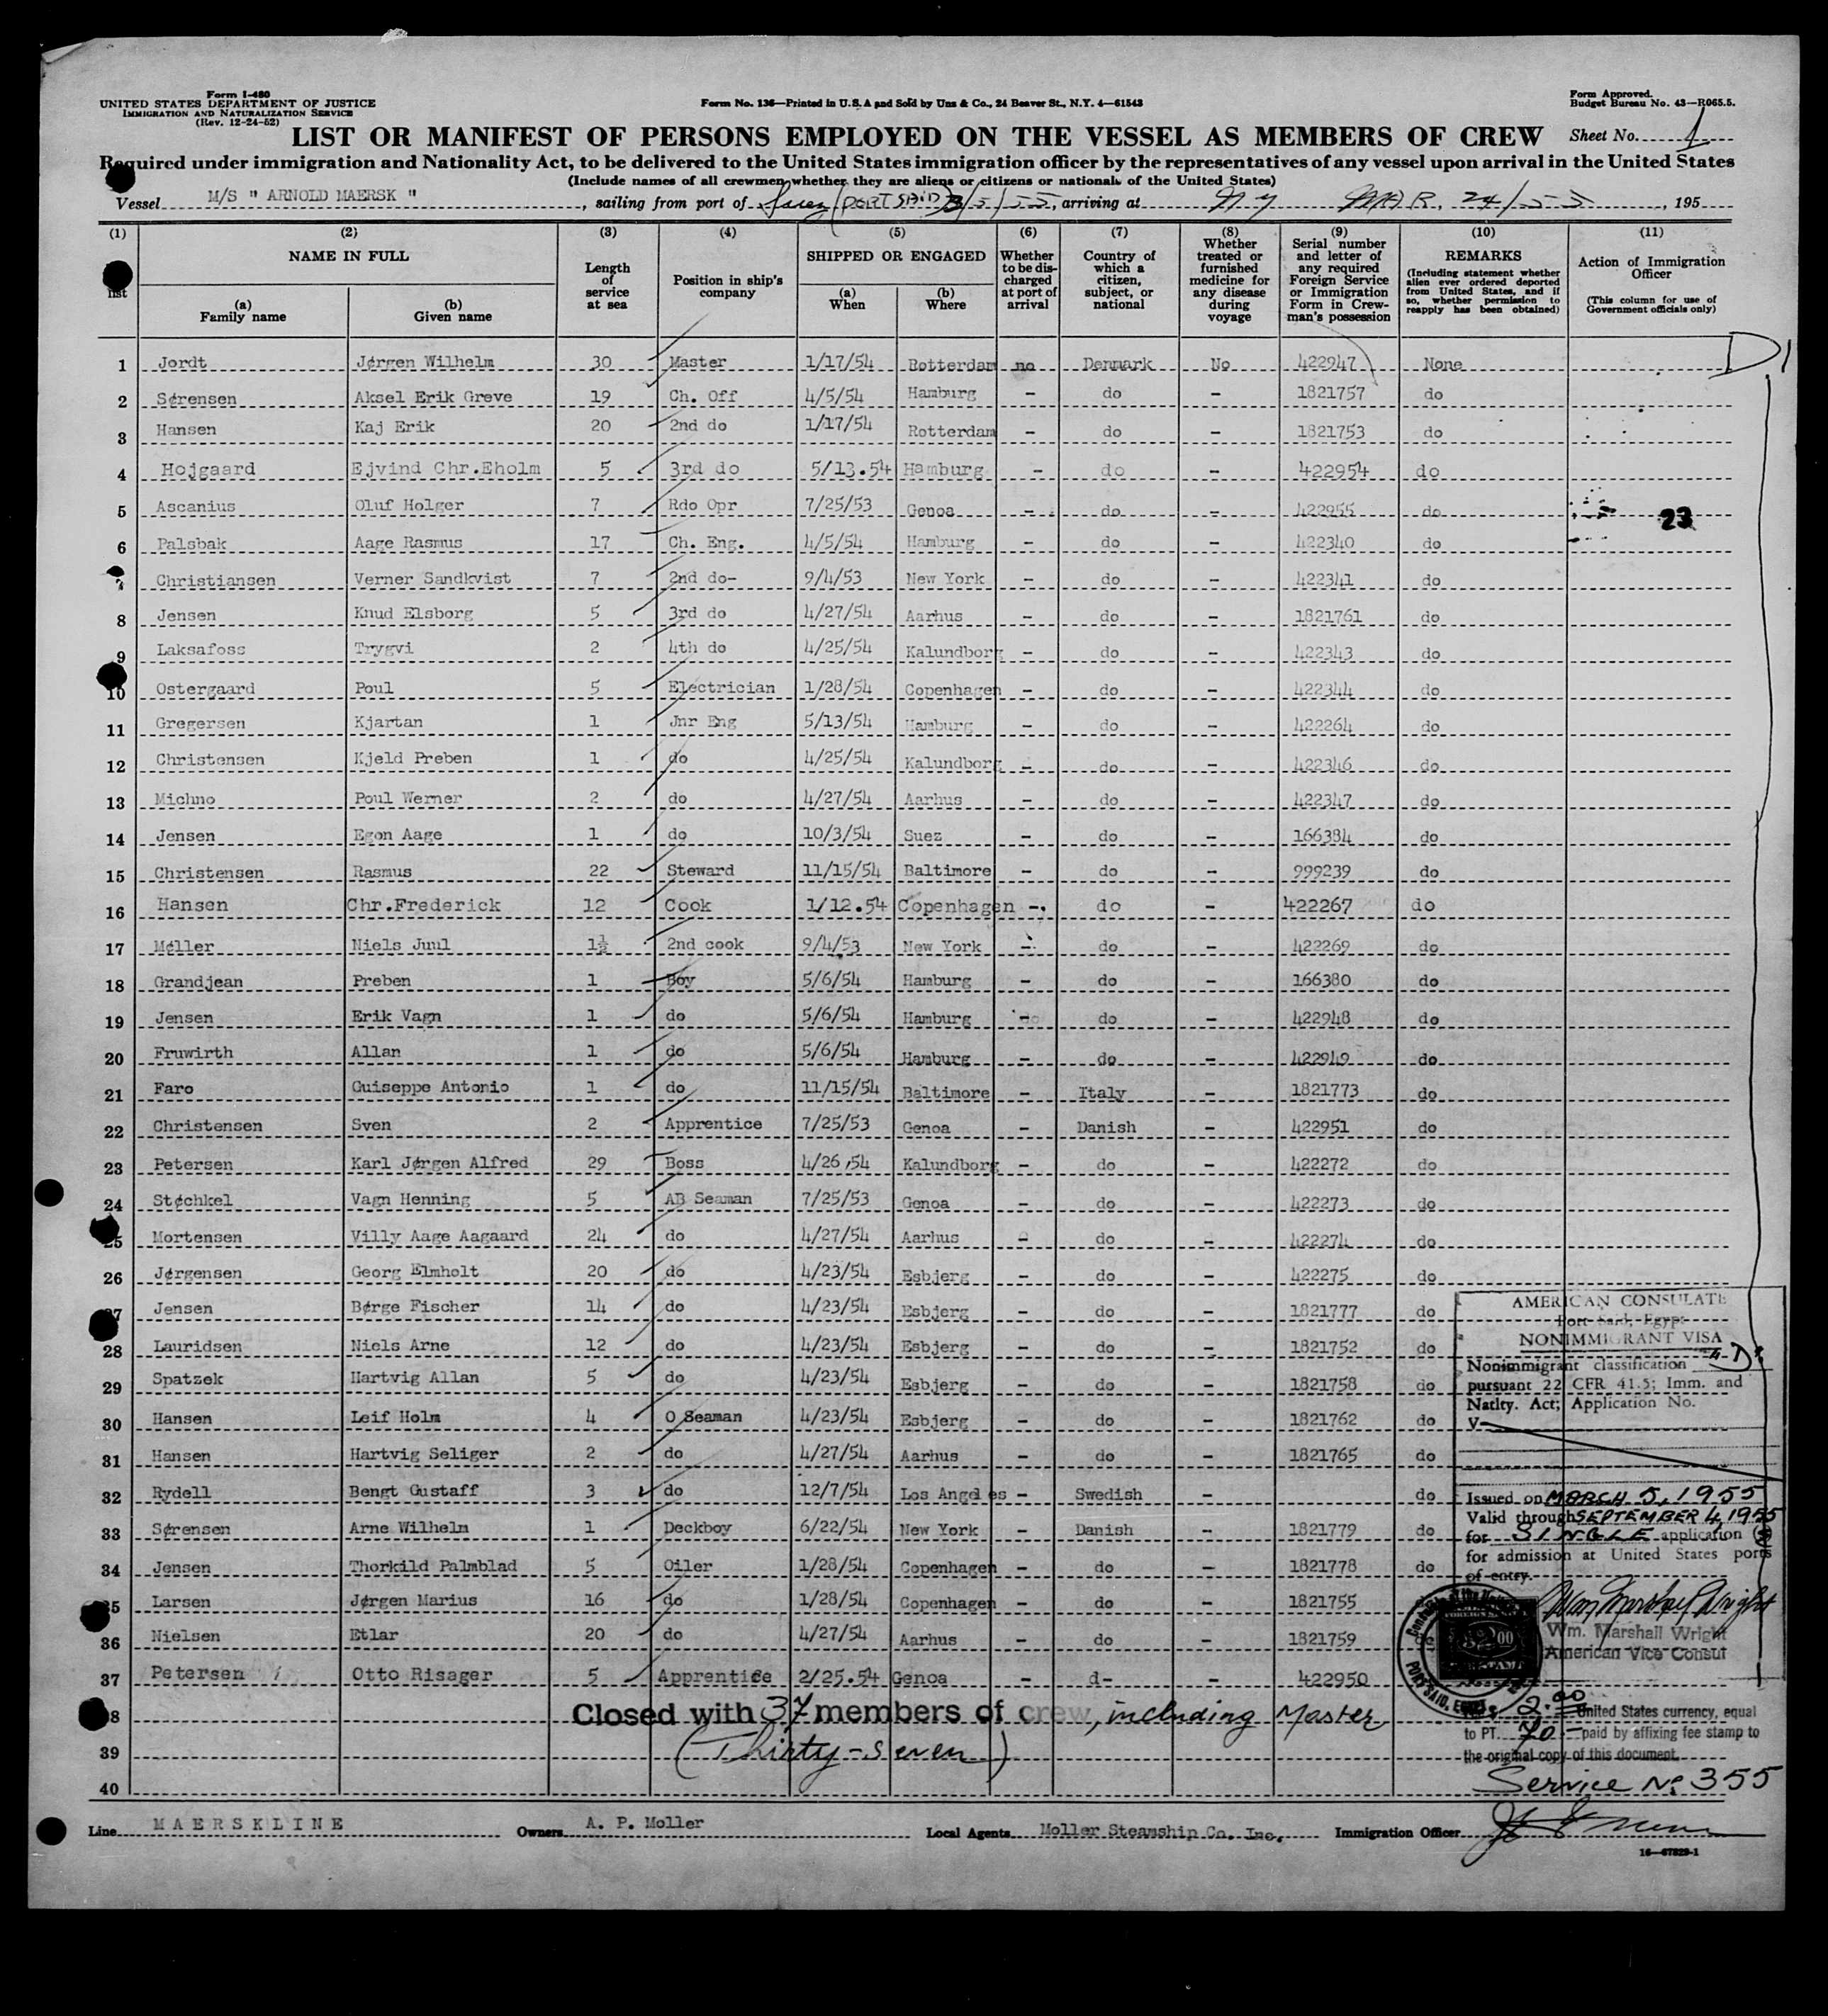 Form I-480
UNITED STATES DEPARTMENT OF JUSTICE
IMMIGRATION AND NATURALIZATION SERVICE
(Rev. 12-24-52)
Form No. 136—Printed in U.S.A and Sold by Unz & Co., 24 Beaver St., N.Y. 4—61543
Form Approved.
Budget Bureau No. 43—R065.5.
LIST OR MANIFEST OF PERSONS EMPLOYED ON THE VESSEL AS MEMBERS OF CREW
Sheet No. 1
Required under immigration and Nationality Act, to be delivered to the United States immigration officer by the representatives of any vessel upon arrival in the United States
(Include names of all crewmen whether they are aliens or citizens or nationals of the United States)
Vessel M/S " ARNOLD MAERSK ", sailing from port of Suez (PORT SAID) 3/5/55, arriving at N Y MAR. 24/55, 195
(1) (2) (3) (4) (5) (6) (7) (8) (9) (10) (11)
list
NAME IN FULL
(a) Family name
(b) Given name
Length of service at sea
Position in ship's company
SHIPPED OR ENGAGED
(a) When
(b) Where
Whether to be discharged at port of arrival
Country of which a citizen, subject, or national
Whether treated or furnished medicine for any disease during voyage
Serial number and letter of any required Foreign Service or Immigration Form in Crewman's possession
REMARKS
(Including statement whether alien ever ordered deported from United States, and if so, whether permission to reapply has been obtained)
Action of Immigration Officer
(This column for use of Government officials only)
1 Jordt Jørgen Wilhelm 30 Master 1/17/54 Rotterdam no Denmark No 422947 None D1
2 Sørensen Aksel Erik Greve 19 Ch. Off 4/5/54 Hamburg - do - 1821757 do
3 Hansen Kaj Erik 20 2nd do 1/17/54 Rotterdam - do - 1821753 do
4 Hojgaard Ejvind Chr.Eholm 5 3rd do 5/13.54 Hamburg - do - 422954 do
5 Ascanius Oluf Holger 7 Rdo Opr 7/25/53 Genoa - do - 422955 do 23
6 Palsbak Aage Rasmus 17 Ch. Eng. 4/5/54 Hamburg - do - 422340 do
7 Christiansen Verner Sandkvist 7 2nd do- 9/4/53 New York - do - 422341 do
8 Jensen Knud Elsborg 5 3rd do 4/27/54 Aarhus - do - 1821761 do
9 Laksafoss Trygvi 2 4th do 4/25/54 Kalundborg - do - 422343 do
10 Ostergaard Poul 5 Electrician 1/28/54 Copenhagen - do - 422344 do
11 Gregersen Kjartan 1 Jnr Eng 5/13/54 Hamburg - do - 422264 do
12 Christensen Kjeld Preben 1 do 4/25/54 Kalundborg - do - 422346 do
13 Michno Poul Werner 2 do 4/27/54 Aarhus - do - 422347 do
14 Jensen Egon Aage 1 do 10/3/54 Suez - do - 166384 do
15 Christensen Rasmus 22 Steward 11/15/54 Baltimore - do - 999239 do
16 Hansen Chr.Frederick 12 Cook 1/12.54 Copenhagen - do - 422267 do
17 Møller Niels Juul 1½ 2nd cook 9/4/53 New York - do - 422269 do
18 Grandjean Preben 1 Boy 5/6/54 Hamburg - do - 166380 do
19 Jensen Erik Vagn 1 do 5/6/54 Hamburg - do - 422948 do
20 Fruwirth Allan 1 do 5/6/54 Hamburg - do - 422949 do
21 Faro Guiseppe Antonio 1 do 11/15/54 Baltimore - Italy - 1821773 do
22 Christensen Sven 2 Apprentice 7/25/53 Genoa - Danish - 422951 do
23 Petersen Karl Jørgen Alfred 29 Boss 4/26,54 Kalundborg - do - 422272 do
24 Støchkel Vagn Henning 5 AB Seaman 7/25/53 Genoa - do - 422273 do
25 Mortensen Villy Aage Aagaard 24 do 4/27/54 Aarhus - do - 422274 do
26 Jørgensen Georg Elmholt 20 do 4/23/54 Esbjerg - do - 422275 do
27 Jensen Børge Fischer 14 do 4/23/54 Esbjerg - do - 1821777 do
28 Lauridsen Niels Arne 12 do 4/23/54 Esbjerg - do - 1821752 do
29 Spatzek Hartvig Allan 5 do 4/23/54 Esbjerg - do - 1821758 do
30 Hansen Leif Holm 4 O Seaman 4/23/54 Esbjerg - do - 1821762 do
31 Hansen Hartvig Seliger 2 do 4/27/54 Aarhus - do - 1821765 do
32 Rydell Bengt Gustaff 3 do 12/7/54 Los Angeles - Swedish - do
33 Sørensen Arne Wilhelm 1 Deckboy 6/22/54 New York - Danish - 1821779 do
34 Jensen Thorkild Palmblad 5 Oiler 1/28/54 Copenhagen - do - 1821778 do
35 Larsen Jørgen Marius 16 do 1/28/54 Copenhagen - do - 1821755
36 Nielsen Etlar 20 do 4/27/54 Aarhus - do - 1821759
37 Petersen Otto Risager 5 Apprentice 2/25.54 Genoa - d- - 422950
38 Closed with 37 members of crew, including Master
39 (Thirty-seven)
40
AMERICAN CONSULATE
Port Said, Egypt
NONIMMIGRANT VISA
Nonimmigrant classification "D"
pursuant 22 CFR 41.5; Imm. and
Natlty. Act; Application No.
V
Issued on MARCH 5, 1955
Valid through SEPTEMBER 4, 1955
for SINGLE application (s)
for admission at United States ports
of entry.
Wm Marshall Wright
Wm. Marshall Wright
American Vice Consul
PORT SAID, EGYPT
$2.00
$ 2.00 United States currency, equal
to PT. 70.- paid by affixing fee stamp to
the original copy of this document.
Service No. 355
Line MAERSKLINE Owners A. P. Moller Local Agents Moller Steamship Co. Inc. Immigration Officer
16—67829-1